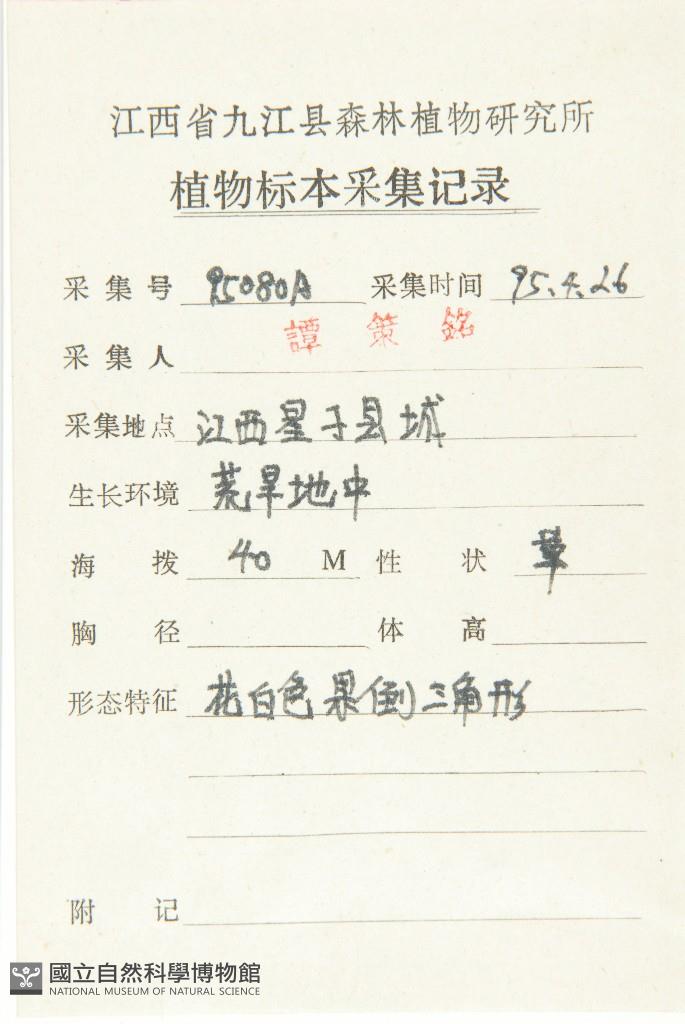 江西省九江县森林植物研究所
植物标本采集记录
采集号 95080A 采集时间 95.4.26
采集人 譚策銘
采集地点 江西星子县城
生长环境 荒旱地中
海拨 40 M 性状 草
胸径 体高
形态特征 花白色果倒三角形
附记
國立自然科學博物館
NATIONAL MUSEUM OF NATURAL SCIENCE